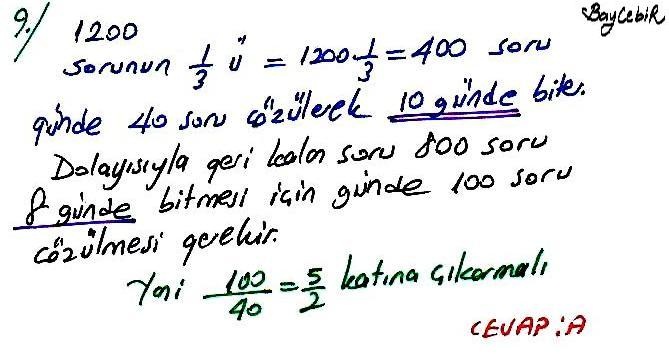 9.) 1200 BayCebiR
sorunun 1/3 ü = 1200·1/3 = 400 soru
günde 40 soru çözülerek 10 günde biter.
Dolayısıyla geri kalan soru 800 soru
8 günde bitmesi için günde 100 soru
çözülmesi gerekir.
Yani 100/40 = 5/2 katına çıkarmalı
CEVAP : A